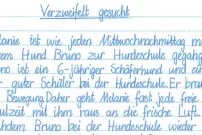 Verzweifelt gesucht
elanie ist wie jeden Mittwochnachmittag m
em Hund Bruno zur Hundeschule gegang
no ist ein 6-jähriger Schäferhund und ei
r guter Schüler bei der Hundeschule. Er brau
Bewegung. Daher geht Melanie fast jede freie
ulzeit mit ihm raus an die frische Luft.
chdem Bruno bei der Hundeschule wieder